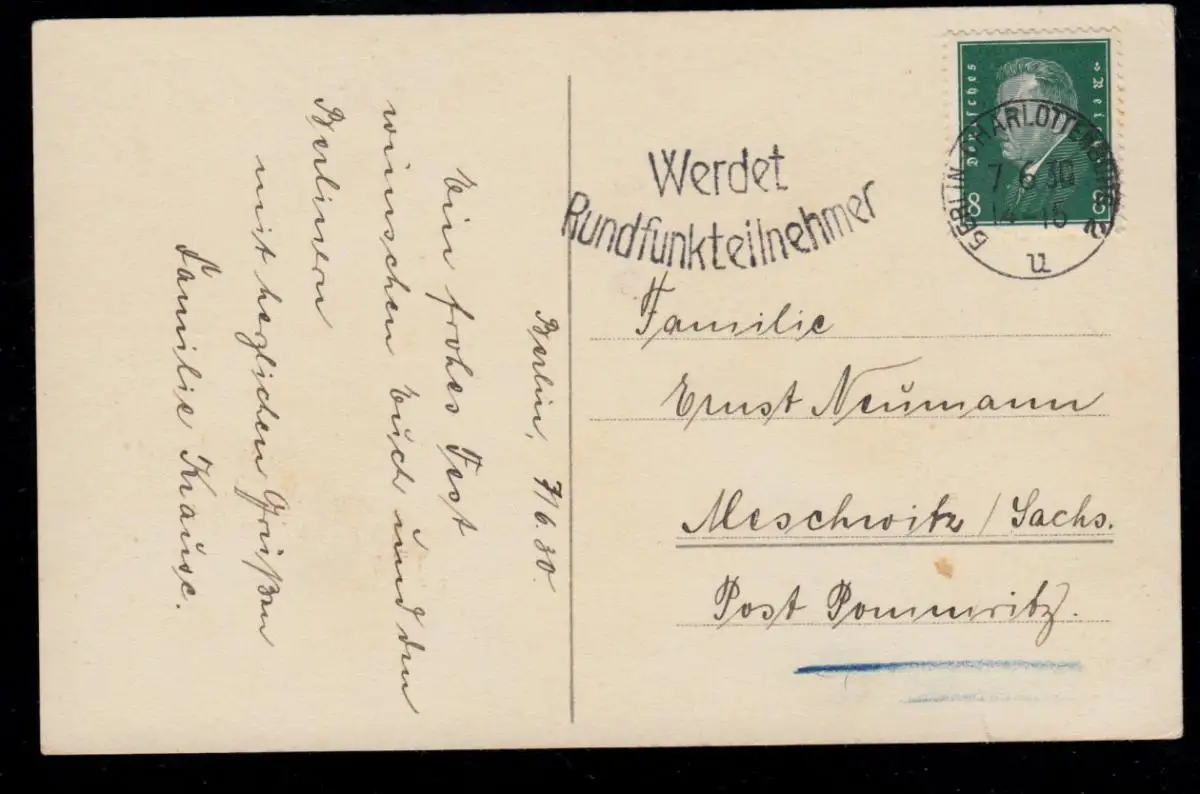 Berlin, 7/6.30.
Ein frohes Fest
wünschen Euch und den
Berlinern
mit herzlichen Grüßen
Familie Krause.
Werdet
Rundfunkteilnehmer
Deutsches Reich
8 8
BERLIN-CHARLOTTENBURG 2
7.6.30
14-15
u
Familie
Ernst Neumann
Meschwitz / Sachs.
Post Pommritz.